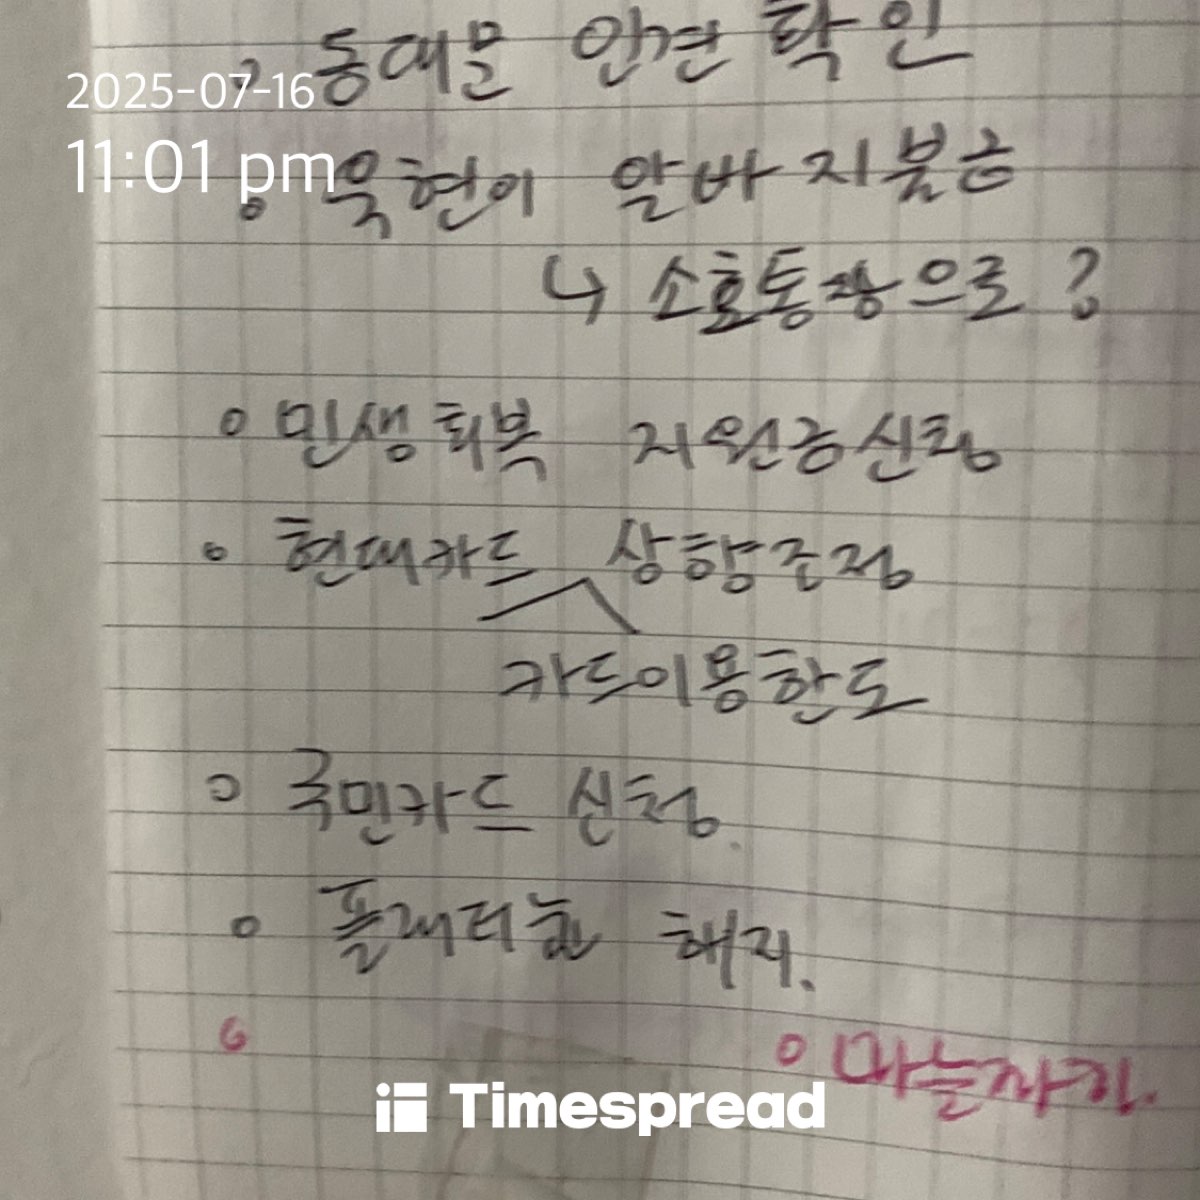 동대문 안경 확인
2025-07-16
11:01 pm
욱현이 알바 지불금
↳ 소호통장으로?
○ 민생회복 지원금신청
○ 현대카드 상향조정
카드이용한도
○ 국민카드 신청.
○ 플래티늄 해지.
○ 마늘까기.
Timespread